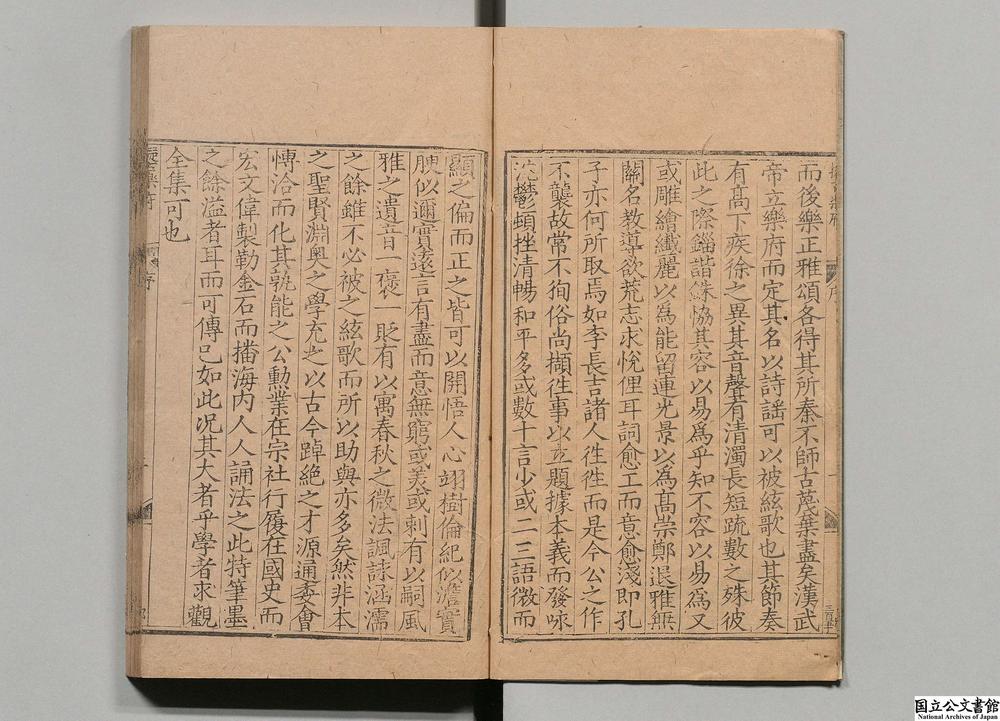 而後樂正雅頌各得其所秦不師古蔑棄盡矣漢武
帝立樂府而定其名以詩謡可以被絃歌也其節奏
有髙下疾徐之異其音聲有清濁長短疏數之殊彼
此之際錙諧銖協其容以易爲乎知不容以易爲又
或雕繪纖麗以爲能留連光景以爲髙崇鄭退雅無
關名教導欲荒志求悅俚耳詞愈工而意愈淺即孔
子亦何所取焉如李長吉諸人徃徃而是今公之作
不襲故常不徇俗尚擷徃事以立題據本義而發咏
沈鬱頓挫清暢和平多或數十言少或二三語微而
顯之偏而正之皆可以開悟人心翊樹倫紀似澹實
腴似邇實遠言有盡而意無窮或美或刺有以嗣風
雅之遺音一褒一貶有以寓春秋之微法諷詠涵濡
之餘雖不必被之絃歌而所以助與亦多矣然非本
之聖賢淵奧之學充之以古今踔絶之才源通委會
慱洽而化其孰能之公勲業在宗社行履在國史而
宏文偉製勒金石而播海内人人誦法之此特筆墨
之餘溢者耳而可傳已如此况其大者乎學者求觀
全集可也
序
国立公文書館
National Archives of Japan